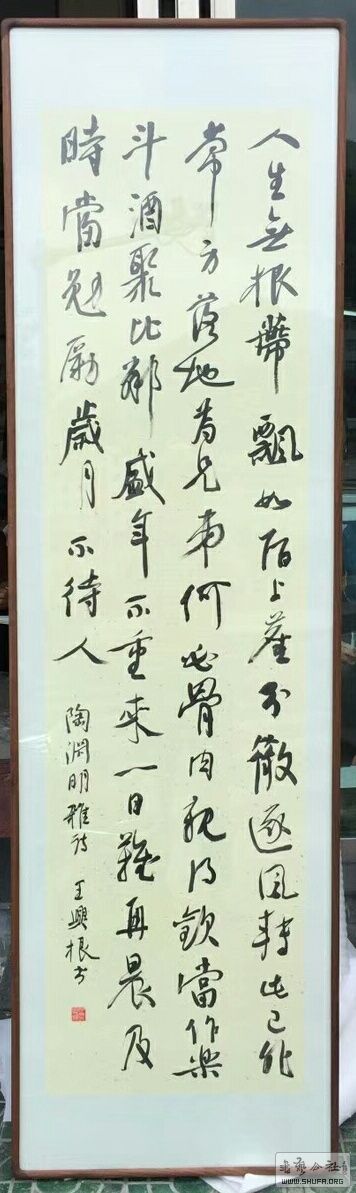 人生無根蔕飄如陌上塵分散逐風轉此已非
常身落地為兄弟何必骨肉親得歡當作樂
斗酒聚比鄰盛年不重來一日難再晨及
時當勉勵歲月不待人
陶淵明雅詩 王興根書
WWW.SHUFA.ORG